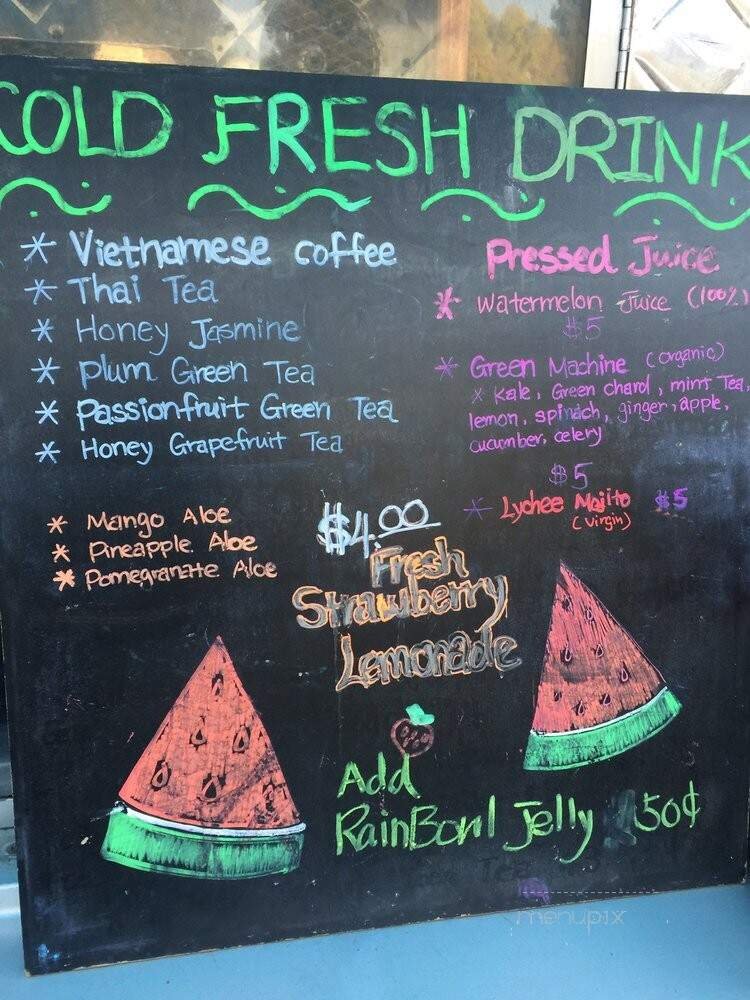 COLD FRESH DRINK
* Vietnamese coffee
* Thai Tea
* Honey Jasmine
* Plum Green Tea
* Passionfruit Green Tea
* Honey Grapefruit Tea
* Mango Aloe
* Pineapple Aloe
* Pomegranate Aloe
$4.00
Fresh
Strawberry
Lemonade
Pressed Juice
* Watermelon Juice (100%)
$5
* Green Machine (organic)
x Kale, Green chard, mint Tea,
lemon, spinach, ginger, apple,
cucumber, celery
$5
* Lychee Mojito $5
(virgin)
Add
RainBowl Jelly 50¢
menupix